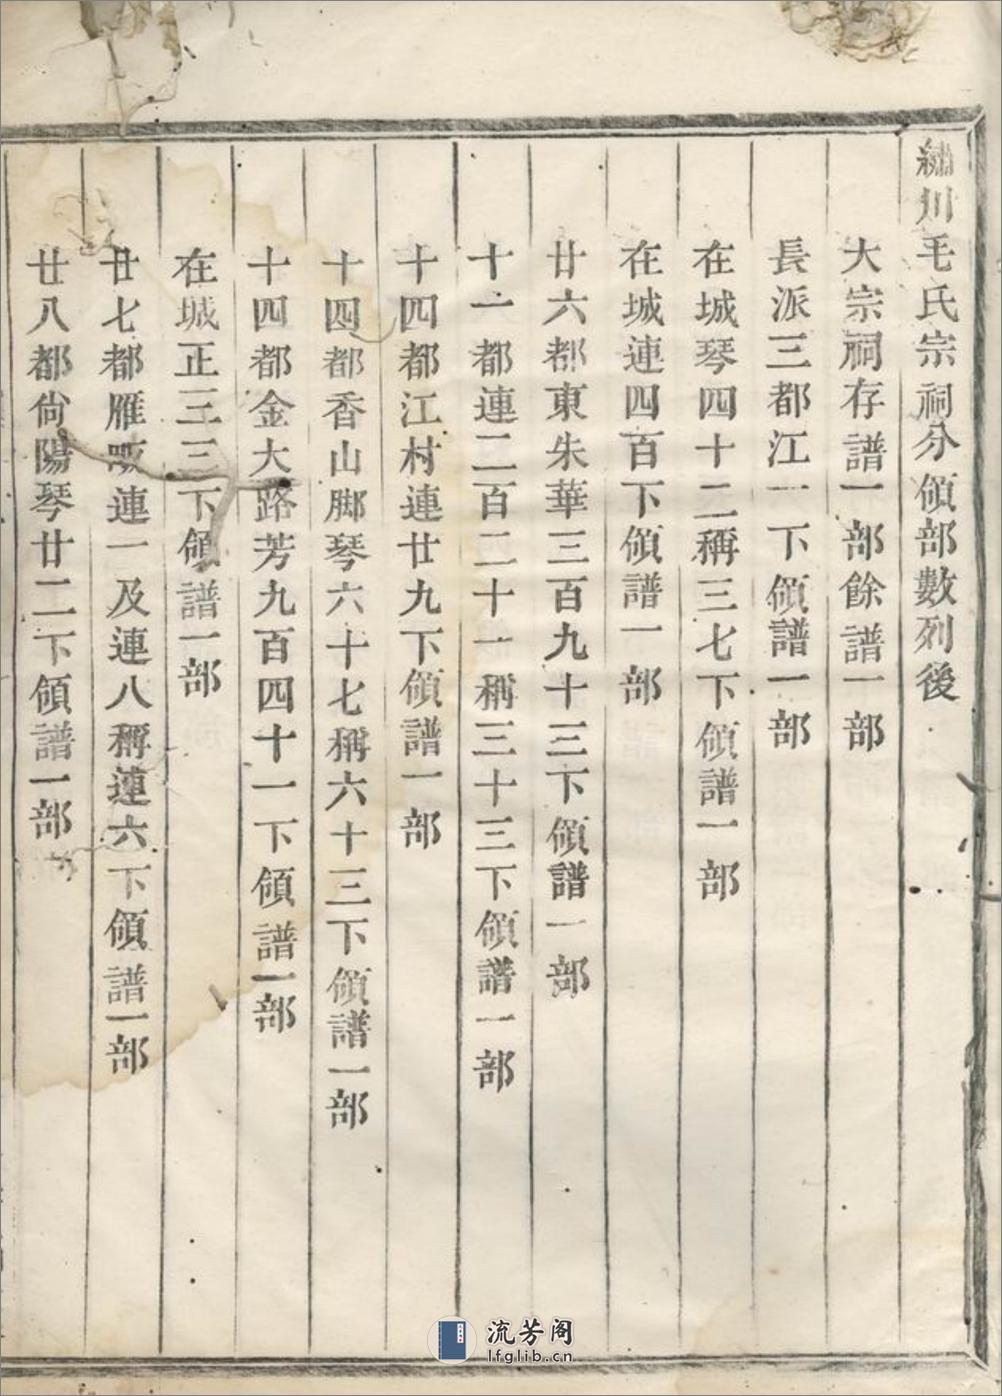 繡川毛氏宗祠分領部數列後
大宗祠存譜一部餘譜一部
長派三都江一下領譜一部
在城琴四十二稱三七下領譜一部
在城連四百下領譜一部
廿六都東朱華三百九十三下領譜一部
十一都連二百二十一稱三十三下領譜一部
十四都江村連廿九下領譜一部
十四都香山脚琴六十七稱六十三下領譜一部
十四都金大路芳九百四十一下領譜一部
在城正三三下領譜一部
廿七都雁連一及連八稱連六下領譜一部
廿八都尙陽琴廿二下領譜一部
流芳阁
lfglib.cn